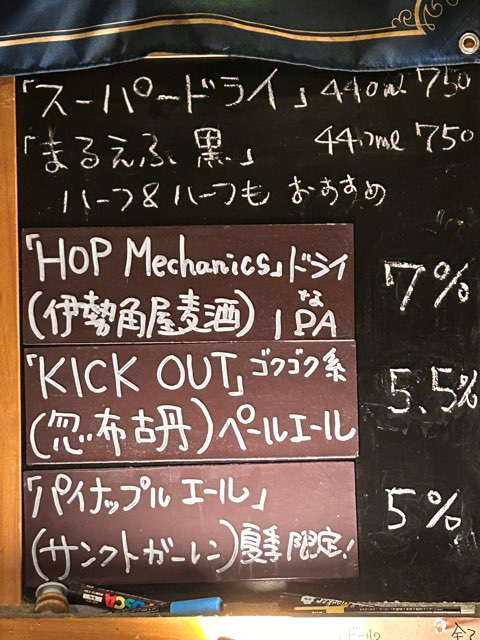 「スーパードライ」 440ml 750
「まるえふ 黒」 447ml 750
ハーフ&ハーフも おすすめ
「HOP Mechanics」ドライ 7%
(伊勢角屋麦酒) な IPA
「KICK OUT」ゴクゴク系 5.5%
(忽布古丹) ペールエール
「パイナップル エール」 5%
(サンクトガーレン) 夏季限定!
POSCA